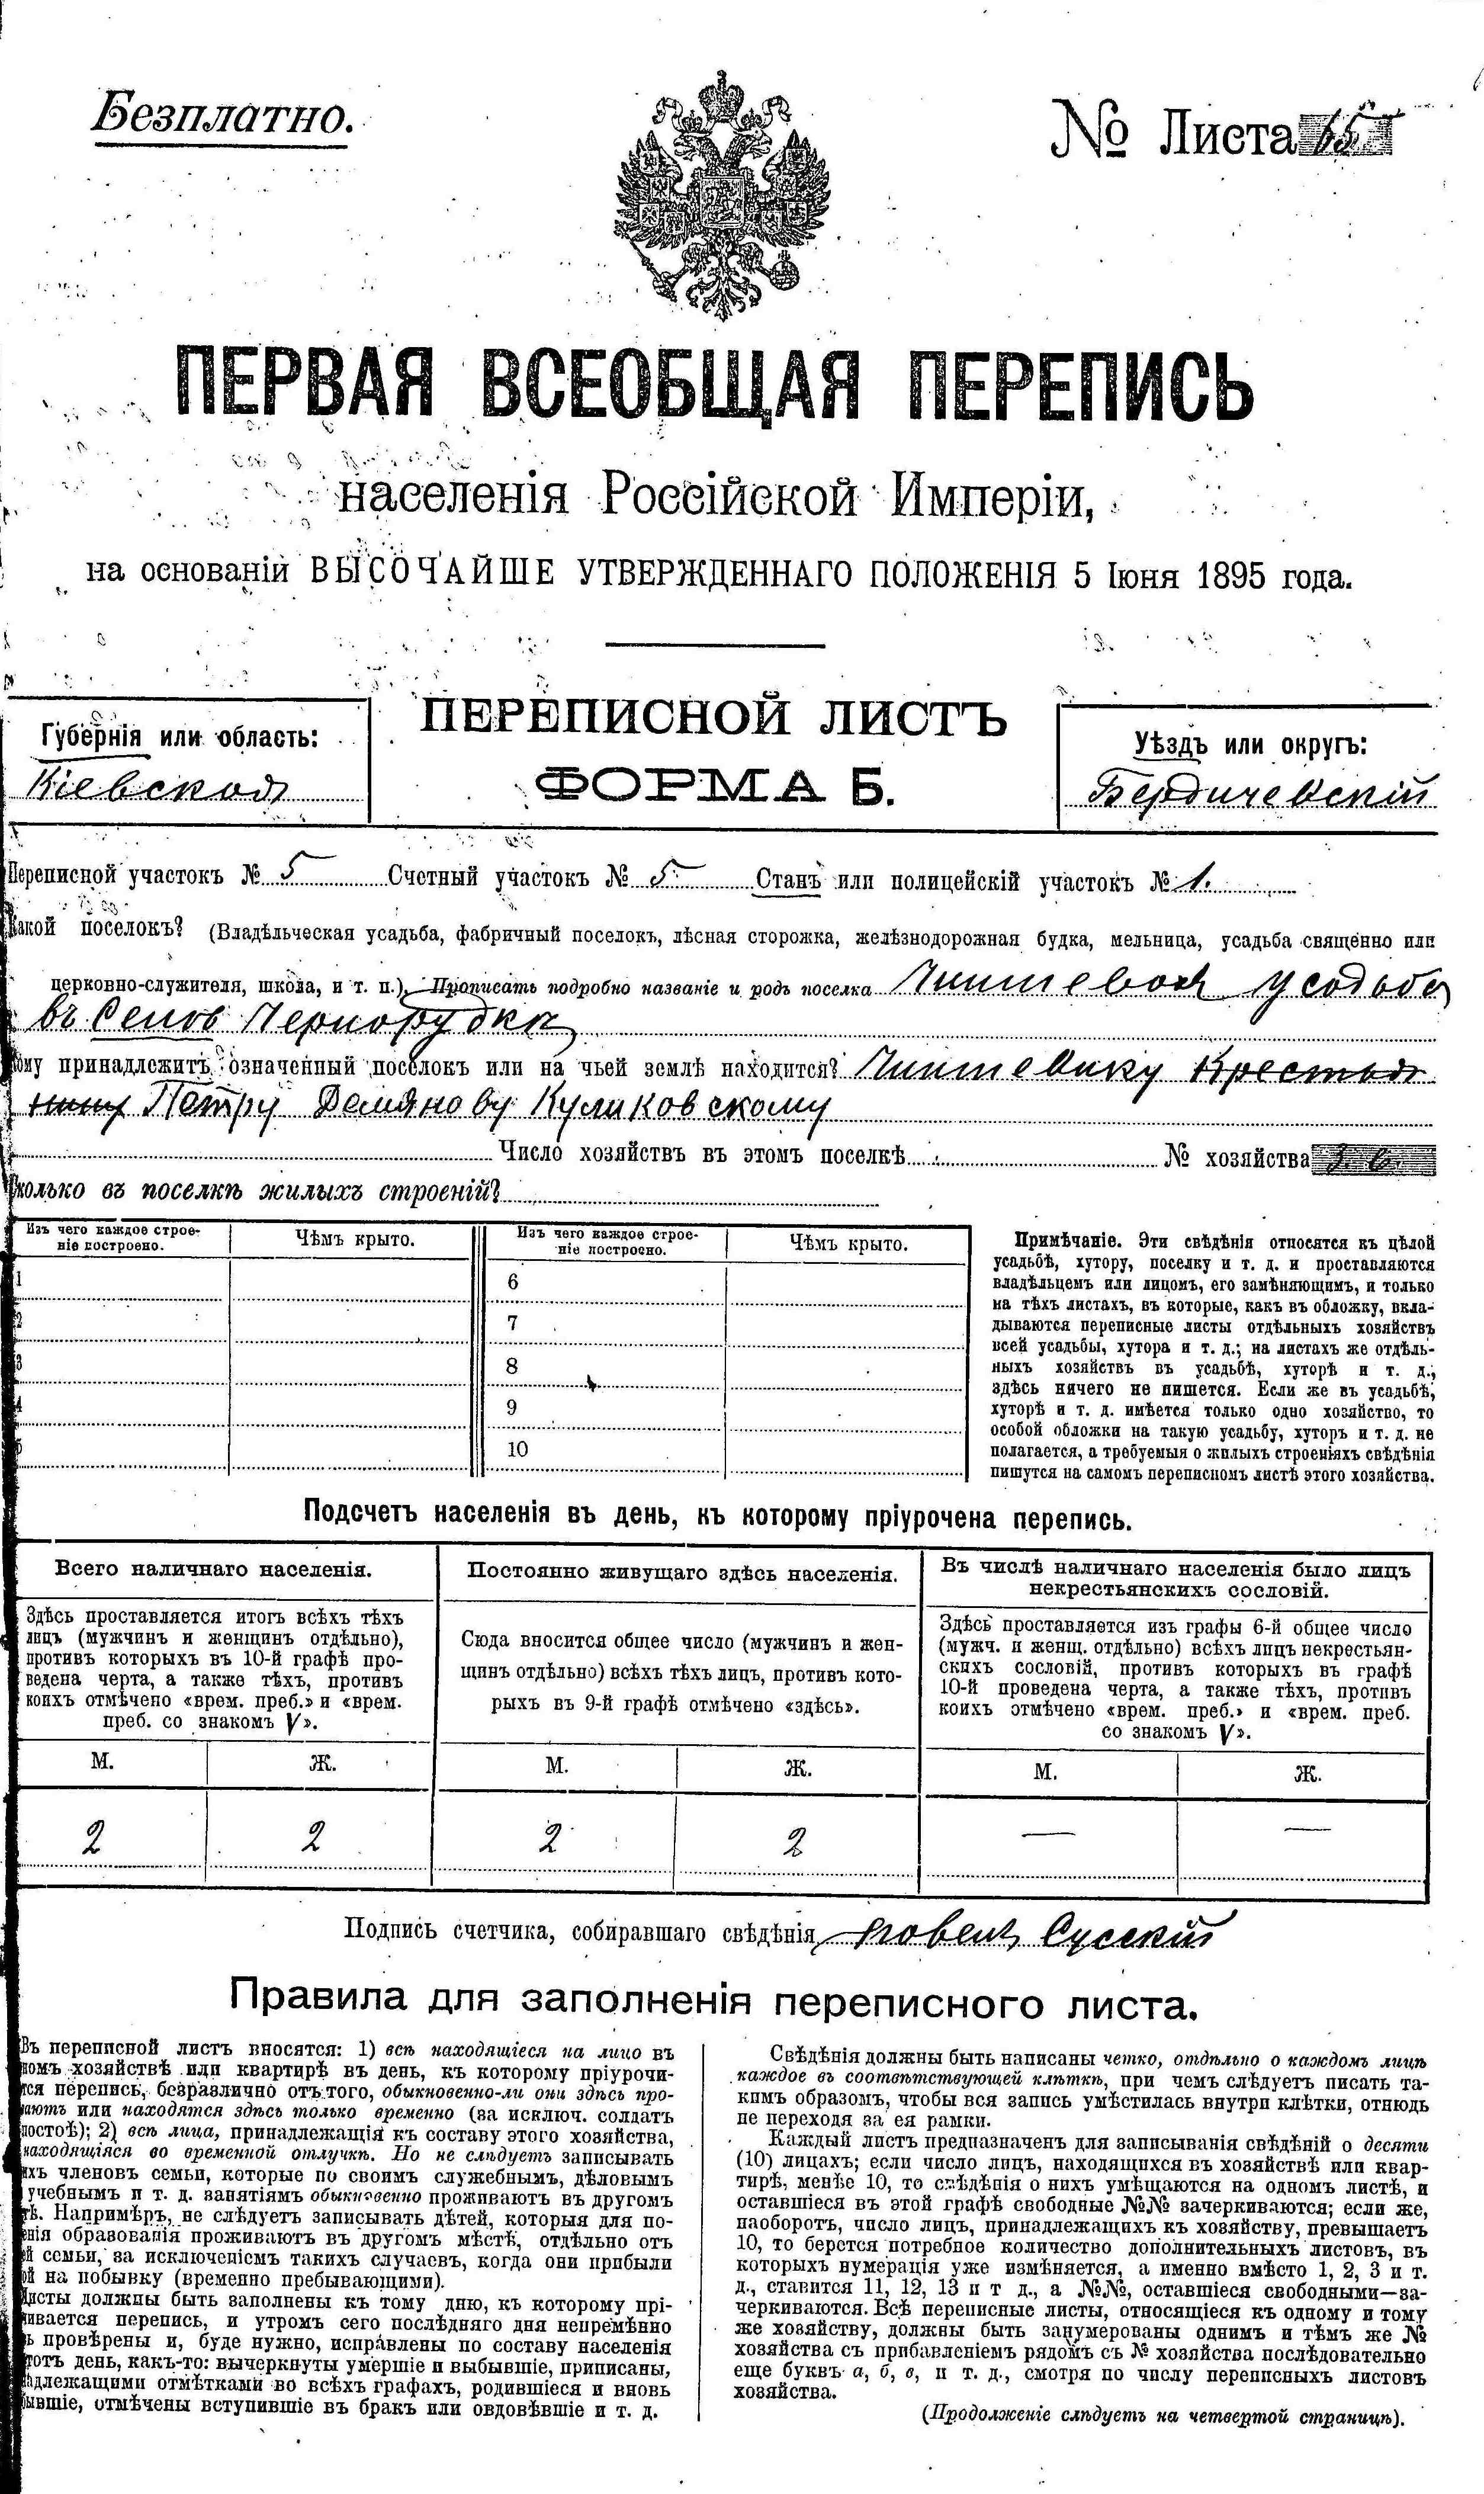 Безплатно.
№ Листа 65
ПЕРВАЯ ВСЕОБЩАЯ ПЕРЕПИСЬ
населенія Россійской Имперіи,
на основаній ВЫСОЧАЙШЕ УТВЕРЖДЕННАГО ПОЛОЖЕНІЯ 5 Іюня 1895 года.
Губернія или область:
Кіевская
ПЕРЕПИСНОЙ ЛИСТЪ
ФОРМА Б.
Уѣздъ или округъ:
Бердичевскій
Переписной участокъ № 5 Счетный участокъ № 5 Станъ или полицейскій участокъ № 1.
Какой поселокъ? (Владѣльческая усадьба, фабричный поселокъ, лѣсная сторожка, желѣзнодорожная будка, мельница, усадьба священно или
церковно-служителя, школа, и т. п.). Прописать подробно названіе и родъ поселка Чиншевая усадьба
въ Селѣ Чернорудкѣ
Кому принадлежитъ означенный поселокъ или на чьей землѣ находится? Чиншевику Крестья
нину Петру Демянову Куликовскому
Число хозяйствъ въ этомъ поселкѣ № хозяйства
Сколько въ поселкѣ жилыхъ строеній?
Изъ чего каждое строе-
ніе построено.
Чѣмъ крыто.
Изъ чего каждое строе-
ніе построено.
Чѣмъ крыто.
1 6
2 7
3 8
4 9
5 10
Примѣчаніе. Эти свѣдѣнія относятся къ цѣлой
усадьбѣ, хутору, поселку и т. д. и проставляются
владѣльцемъ или лицомъ, его замѣняющимъ, и только
на тѣхъ листахъ, въ которые, какъ въ обложку, вкла-
дываются переписные листы отдѣльныхъ хозяйствъ
всей усадьбы, хутора и т. д.; на листахъ же отдѣль-
ныхъ хозяйствъ въ усадьбѣ, хуторѣ и т. д.,
здѣсь ничего не пишется. Если же въ усадьбѣ,
хуторѣ и т. д. имѣется только одно хозяйство, то
особой обложки на такую усадьбу, хуторъ и т. д. не
полагается, а требуемыя о жилыхъ строеніяхъ свѣдѣнія
пишутся на самомъ переписномъ листѣ этого хозяйства.
Подсчетъ населенія въ день, къ которому пріурочена перепись.
Всего наличнаго населенія.
Здѣсь проставляется итогъ всѣхъ тѣхъ
лицъ (мужчинъ и женщинъ отдѣльно),
противъ которыхъ въ 10-й графѣ про-
ведена черта, а также тѣхъ, противъ
коихъ отмѣчено «врем. преб.» и «врем.
преб. со знакомъ V».
М. Ж.
2 2
Постоянно живущаго здѣсь населенія.
Сюда вносится общее число (мужчинъ и жен-
щинъ отдѣльно) всѣхъ тѣхъ лицъ, противъ кото-
рыхъ въ 9-й графѣ отмѣчено «здѣсь».
М. Ж.
2 2
Въ числѣ наличнаго населенія было лицъ
некрестьянскихъ сословій.
Здѣсь проставляется изъ графы 6-й общее число
(мужч. и женщ. отдѣльно) всѣхъ лицъ некрестьян-
скихъ сословій, противъ которыхъ въ графѣ
10-й проведена черта, а также тѣхъ, противъ
коихъ отмѣчено «врем. преб.» и «врем. преб.
со знакомъ V».
М. Ж.
— —
Подпись счетчика, собиравшаго свѣдѣнія
Правила для заполненія переписного листа.
Въ переписной листъ вносятся: 1) всѣ находящіеся на лицо въ
номъ хозяйствѣ или квартирѣ въ день, къ которому пріурочи-
тся перепись, безразлично отъ того, обыкновенно-ли они здѣсь про-
ваютъ или находятся здѣсь только временно (за исключ. солдатъ
постоѣ); 2) всѣ лица, принадлежащія къ составу этого хозяйства,
находящіяся во временной отлучкѣ. Но не слѣдуетъ записывать
ихъ членовъ семьи, которые по своимъ служебнымъ, дѣловымъ
учебнымъ и т. д. занятіямъ обыкновенно проживаютъ въ другомъ
тѣ. Напримѣръ, не слѣдуетъ записывать дѣтей, которыя для по-
енія образованія проживаютъ въ другомъ мѣстѣ, отдѣльно отъ
ей семьи, за исключеніемъ такихъ случаевъ, когда они прибыли
ой на побывку (временно пребывающими).
Листы должны быть заполнены къ тому дню, къ которому прі-
чивается перепись, и утромъ сего послѣдняго дня непремѣнно
ь провѣрены и, буде нужно, исправлены по составу населенія
тотъ день, какъ-то: вычеркнуты умершіе и выбывшіе, приписаны,
адлежащими отмѣтками во всѣхъ графахъ, родившіеся и вновь
бывшіе, отмѣчены вступившіе въ бракъ или овдовѣвшіе и т. д.
Свѣдѣнія должны быть написаны четко, отдѣльно о каждомъ лицѣ
каждое въ соотвѣтствующей клѣткѣ, при чемъ слѣдуетъ писать та-
кимъ образомъ, чтобы вся запись умѣстилась внутри клѣтки, отнюдь
не переходя за ея рамки.
Каждый листъ предназначенъ для записыванія свѣдѣній о десяти
(10) лицахъ; если число лицъ, находящихся въ хозяйствѣ или квар-
тирѣ, менѣе 10, то свѣдѣнія о нихъ умѣщаются на одномъ листѣ, и
оставшіеся въ этой графѣ свободные №№ зачеркиваются; если же,
наоборотъ, число лицъ, принадлежащихъ къ хозяйству, превышаетъ
10, то берется потребное количество дополнительныхъ листовъ, въ
которыхъ нумерація уже измѣняется, а именно вмѣсто 1, 2, 3 и т.
д., ставится 11, 12, 13 и т д., а №№, оставшіеся свободными—за-
черкиваются. Всѣ переписные листы, относящіеся къ одному и тому
же хозяйству, должны быть занумерованы однимъ и тѣмъ же №
хозяйства съ прибавленіемъ рядомъ съ № хозяйства послѣдовательно
еще буквъ а, б, в, и т. д., смотря по числу переписныхъ листовъ
хозяйства.
(Продолженіе слѣдуетъ на четвертой страницѣ).